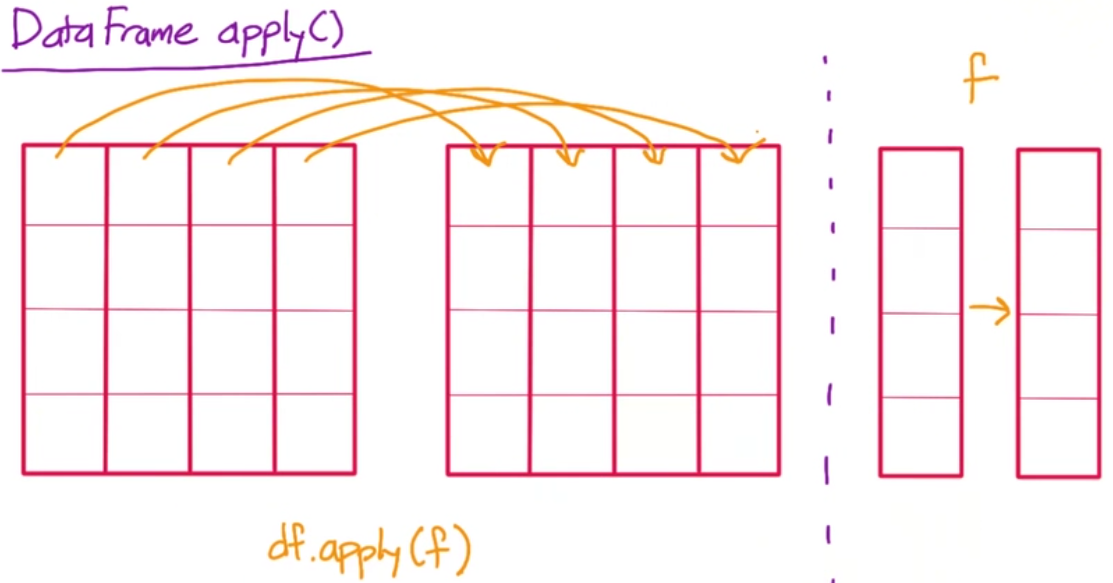 DataFrame apply()
f
df.apply(f)